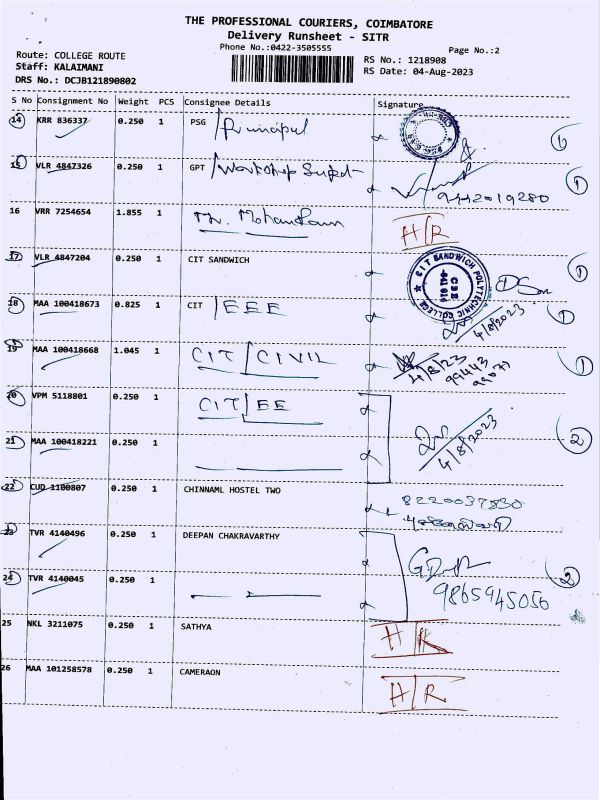 THE PROFESSIONAL COURIERS, COIMBATORE
Delivery Runsheet - SITR
Phone No.:0422-3505555
Page No.:2
Route: COLLEGE ROUTE
Staff: KALAIMANI
DRS No.: DCJB121890802
RS No.: 1218908
RS Date: 04-Aug-2023
S No Consignment No Weight PCS Consignee Details Signature
14 KRR 836337 0.250 1 PSG / Principal 1
15 VLR 4847326 0.250 1 GPT / Workshop Supdt 9442019280 1
16 VRR 7254654 1.855 1 Mr. H/R
17 VLR 4847204 0.250 1 CIT SANDWICH CIT SANDWICH POLYTECHNIC COLLEGE CBE 641 014 1
18 MAA 100418673 0.825 1 CIT / EEE 4/8/2023 1
19 MAA 100418668 1.045 1 CIT / CIVIL 4/8/23 99443 99071 1
20 VPM 5118801 0.250 1 CIT / EE
21 MAA 100418221 0.250 1 4/8/2023 2
22 CUD 1100807 0.250 1 CHINNAML HOSTEL TWO 8220037830
23 TVR 4140496 0.250 1 DEEPAN CHAKRAVARTHY
24 TVR 4140045 0.250 1 9865945056 2
25 NKL 3211075 0.250 1 SATHYA H/R
26 MAA 101258578 0.250 1 CAMERAON H/R